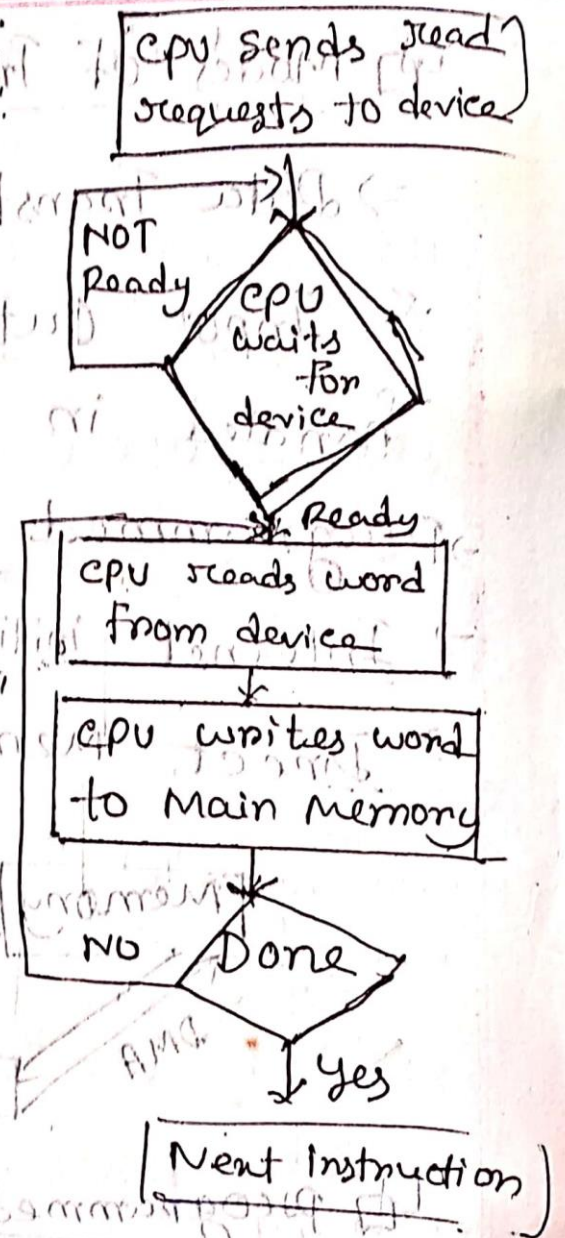 CPU sends read
requests to device
NOT
Ready
CPU
waits
for
device
Ready
CPU reads word
from device
CPU writes word
to Main Memory
NO
Done
Yes
Next instruction
DMA